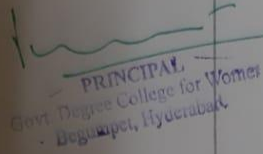 PRINCIPAL
Govt. Degree College for Women
Begumpet, Hyderabad.